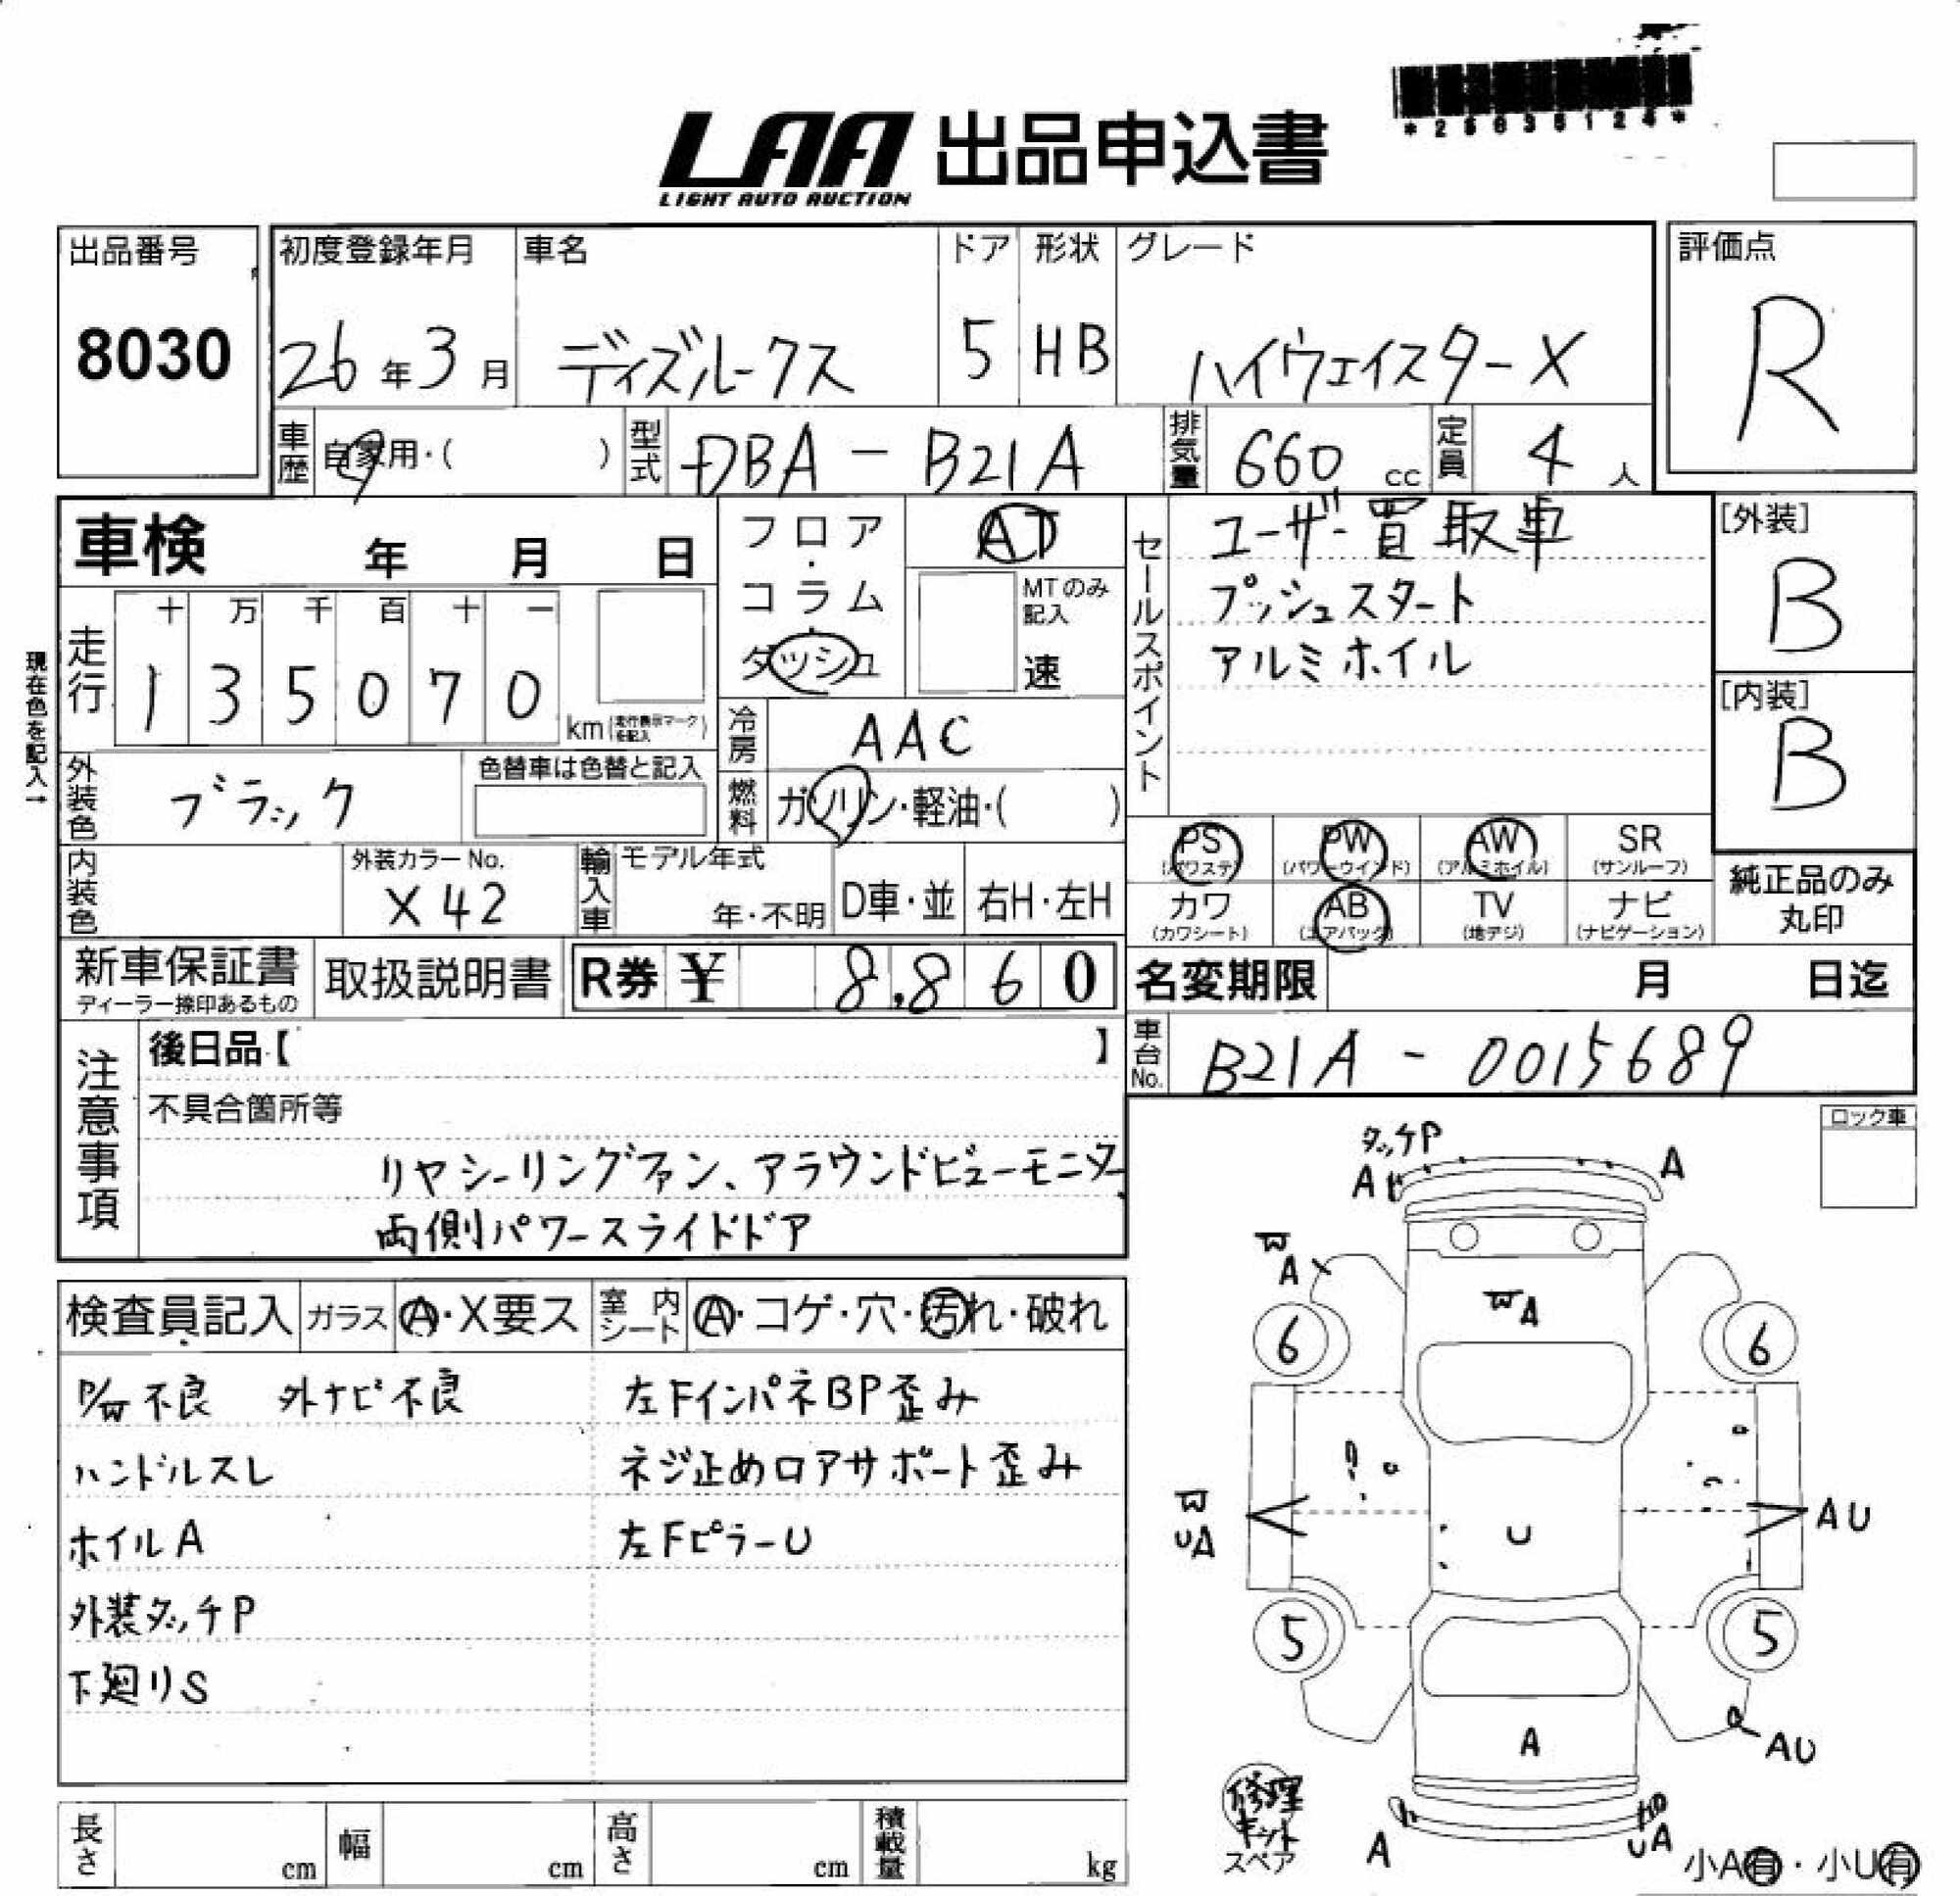 *25035124*
LAA 出品申込書
LIGHT AUTO AUCTION
出品番号
8030
初度登録年月
26年3月
車名
ディズルークス
ドア
5
形状
HB
グレード
ハイウェイスターX
評価点
R
車歴
自家用・( )
型式
DBA-B21A
排気量
660 cc
定員
4人
車検 年 月 日
フロア・コラム・ダッシュ
AT
MTのみ記入
速
セールスポイント
ユーザー買取車
プッシュスタート
アルミホイル
[外装]
B
[内装]
B
現在色を記入→
走行
十 万 千 百 十 一
1 3 5 0 7 0
km(走行表示マークを記入)
冷房
AAC
外装色
ブラック
色替車は色替と記入
燃料
ガソリン・軽油・( )
内装色
外装カラーNo.
X42
輸入車
モデル年式
年・不明
D車・並
右H・左H
PS
(パワステ)
PW
(パワーウインド)
AW
(アルミホイル)
SR
(サンルーフ)
カワ
(カワシート)
AB
(エアバック)
TV
(地デジ)
ナビ
(ナビゲーション)
純正品のみ
丸印
新車保証書
ディーラー捺印あるもの
取扱説明書
R券 ¥ 8,860
名変期限 月 日迄
車台No.
B21A-0015689
注意事項
後日品【 】
不具合箇所等
リヤシーリングファン、アラウンドビューモニター
両側パワースライドドア
ロック車
タッチP
A
A
W
A
WA
6
6
W
UA
U
AU
5
5
A
AU
修理キット
スペア
A
UA
小A有・小U有
検査員記入
ガラス
A・X要ス
室内シート
A・コゲ・穴・汚れ・破れ
P/W不良 外ナビ不良
左FインパネBP歪み
ハンドルスレ
ネジ止めロアサポート歪み
ホイルA
左FピラーU
外装タッチP
下廻りS
長さ cm
幅 cm
高さ cm
積載量 kg